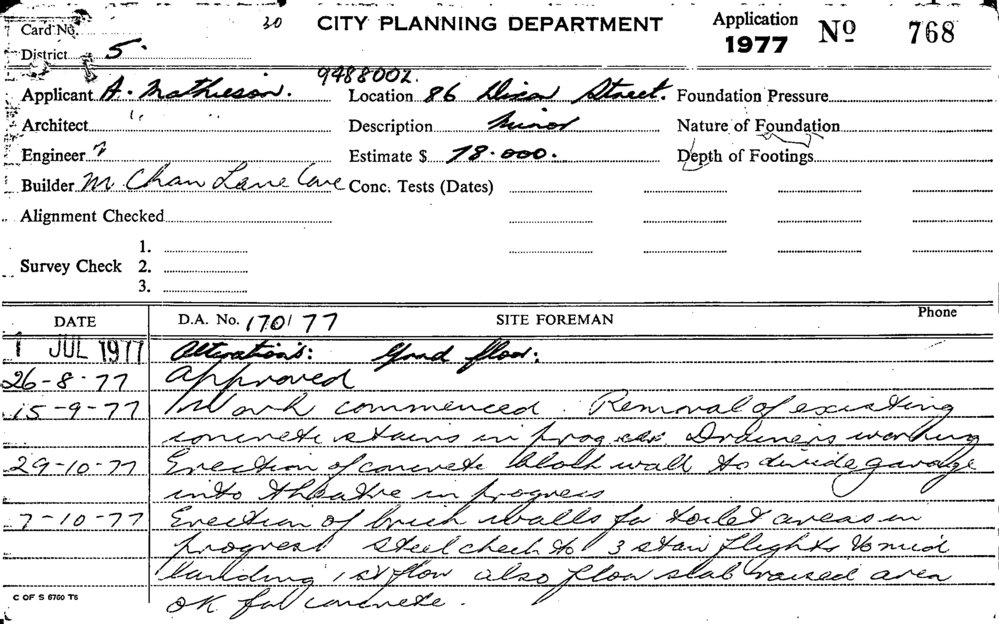 Card No. 30 CITY PLANNING DEPARTMENT Application 1977 No 768
District 5.
9488002.
Applicant A. Mathieson. Location 86 Dixon Street. Foundation Pressure
Architect " " Description Minor Nature of Foundation
Engineer ? Estimate $ 78.000. Depth of Footings
Builder M Chan Lane Cove Conc. Tests (Dates)
Alignment Checked
1.
Survey Check 2.
3.
DATE D.A. No. 170/77 SITE FOREMAN Phone
1 JUL 1977 Alterations: Grnd floor:
26-8-77 Approved
15-9-77 Work commenced. Removal of existing
concrete stairs in progress Drainers working
29-10-77 Erection of concrete block wall to divide garage
into theatre in progress
7-10-77 Erection of brick walls for toilet areas in
progress Steel check to 3 stair flights to mid
landing 1st floor also floor slab raised area
OK for concrete.
C OF S 6760 T6